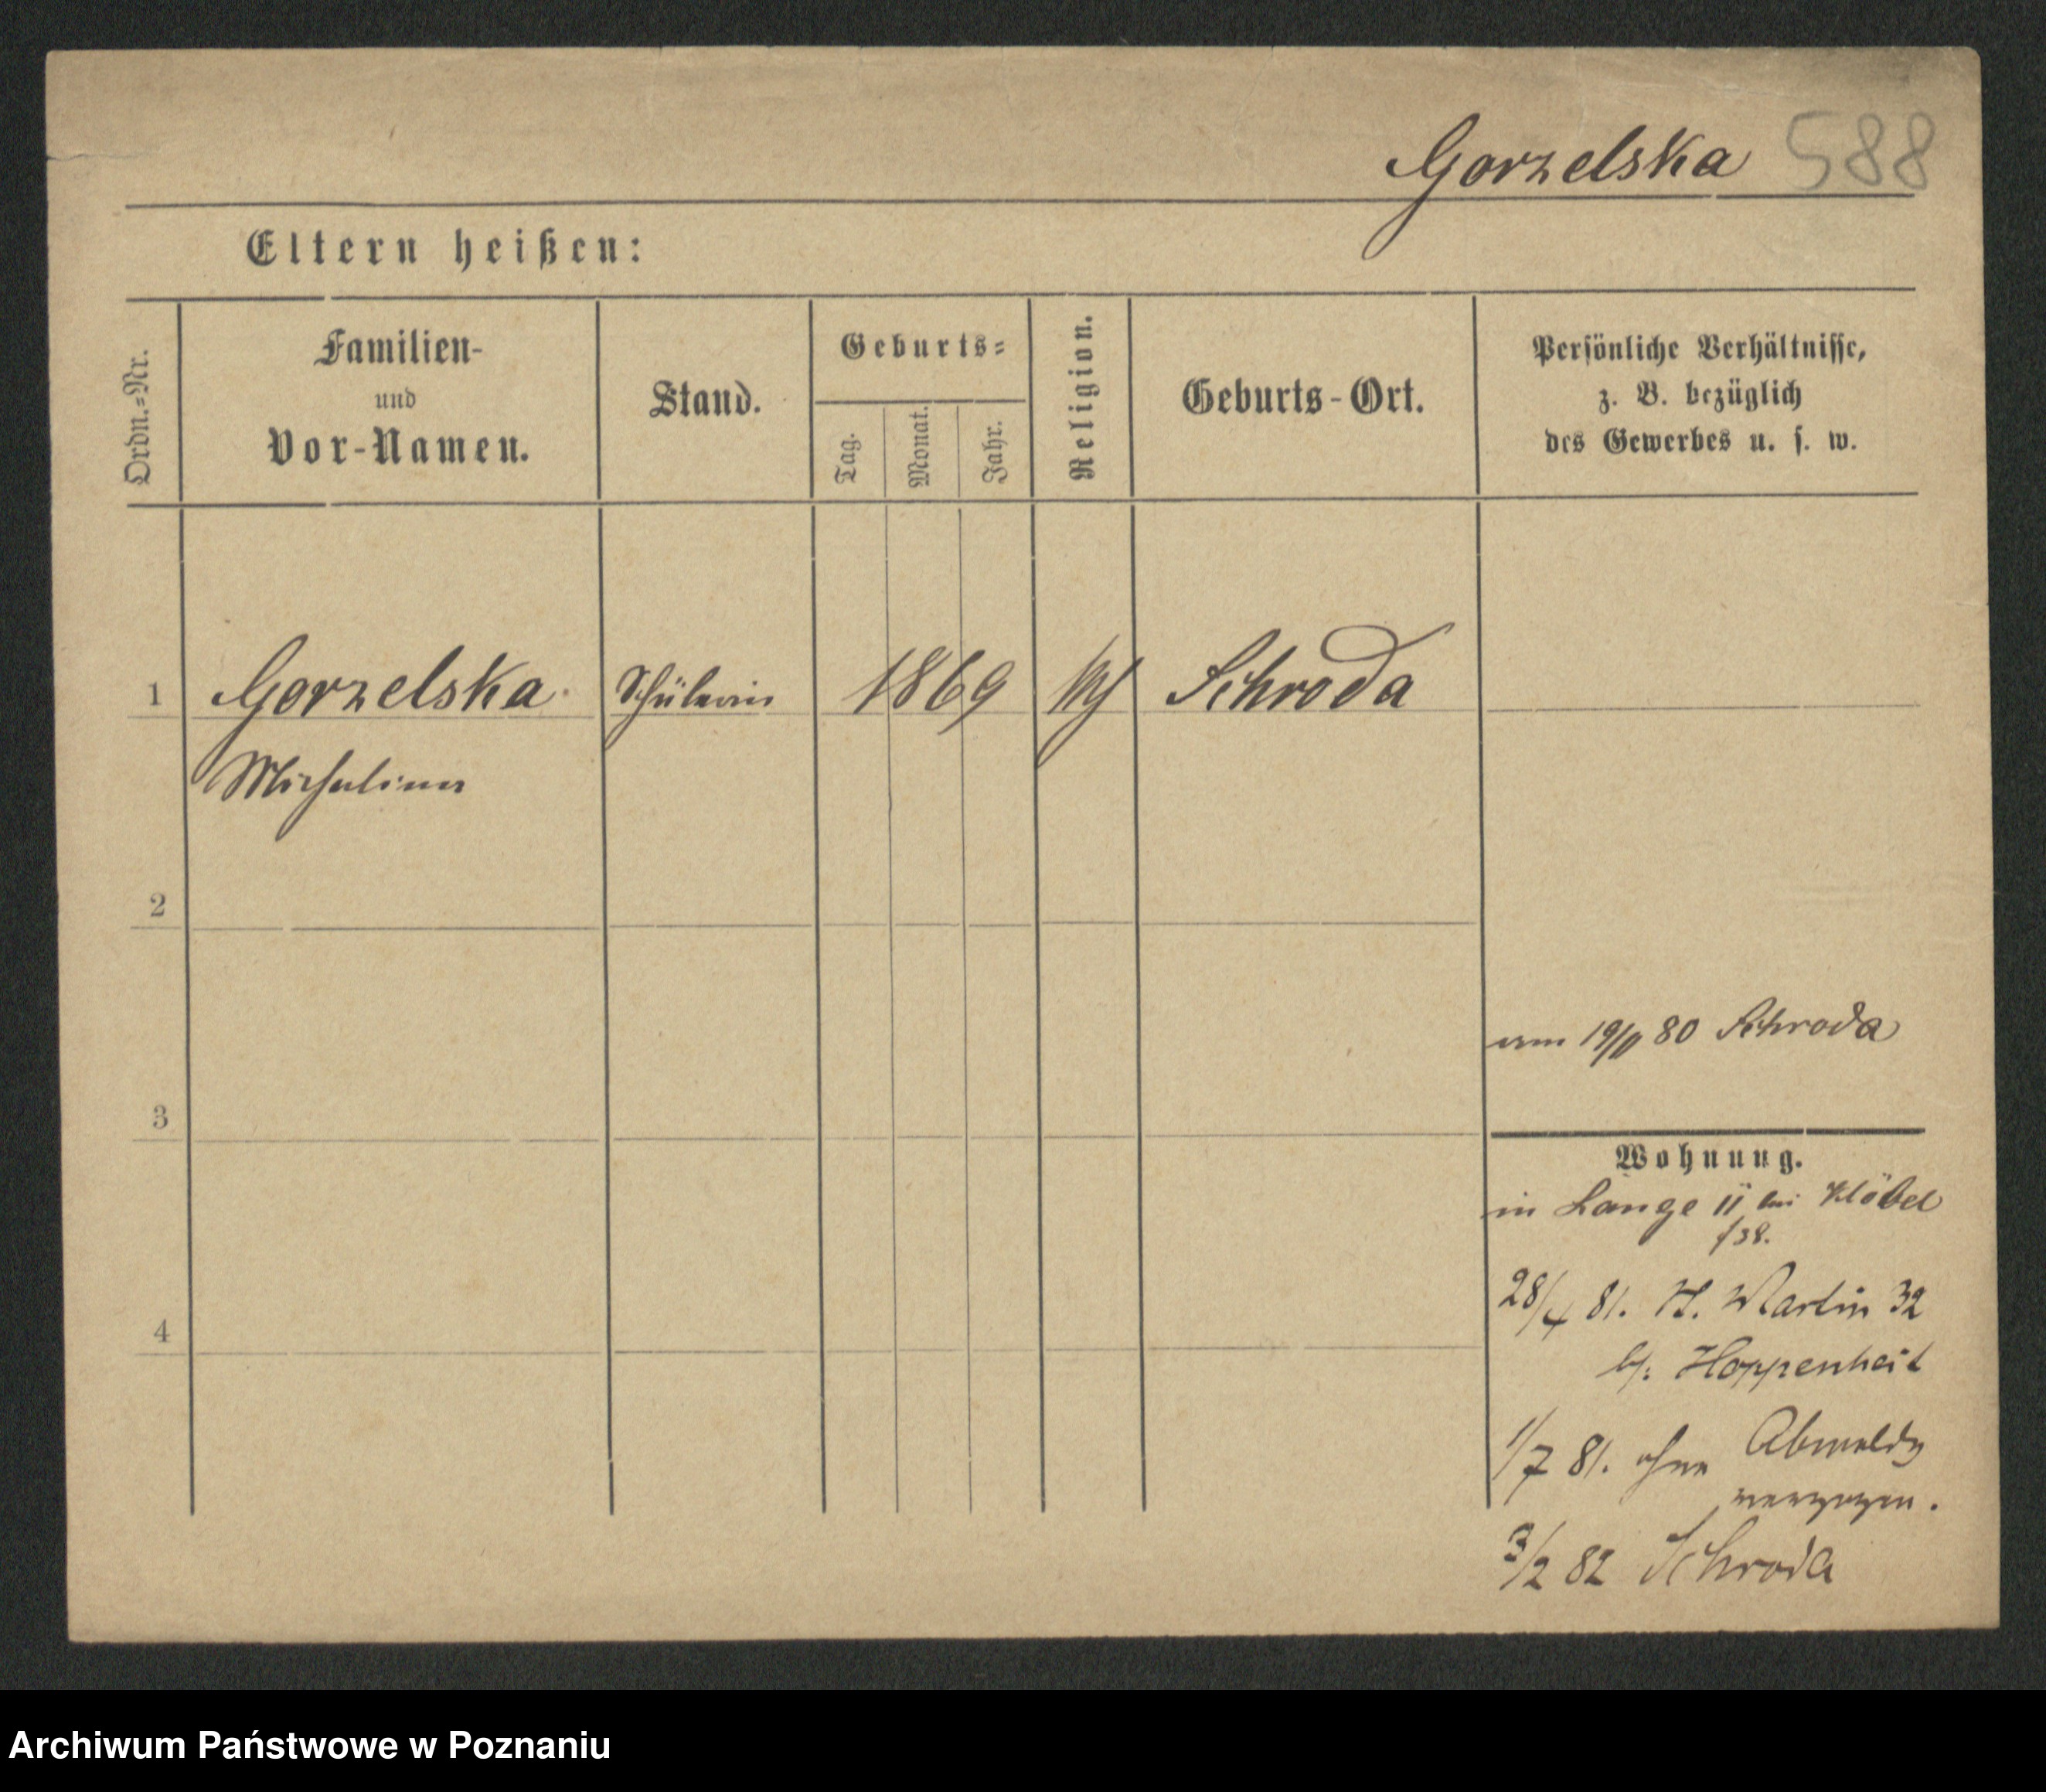 Gorzelska 588
Eltern heißen:
Ordn.-Nr.
Familien-
und
Vor-Namen.
Stand.
Geburts-
Tag.
Monat.
Jahr.
Religion.
Geburts-Ort.
Persönliche Verhältnisse,
z. B. bezüglich
des Gewerbes u. s. w.
1 Gorzelska Schülerin 1869 Schroda
Michalina
2
am 80 Schroda
3
Wohnung.
in Lange 11 bei Klöbel
28/4 81. St. Martin 32
b/: Hoppenheit
4
1/7 81. ohne Abmeldg
verzogen.
3/2 82 Schroda
Archiwum Państwowe w Poznaniu